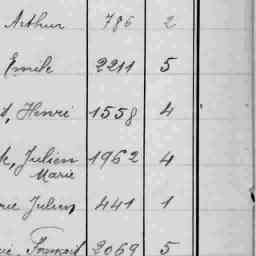 Arthur 786 2
Emile 2211 5
Henri 1558 4
Julien 1962 4
Marie
Julien 441 1
2069 5